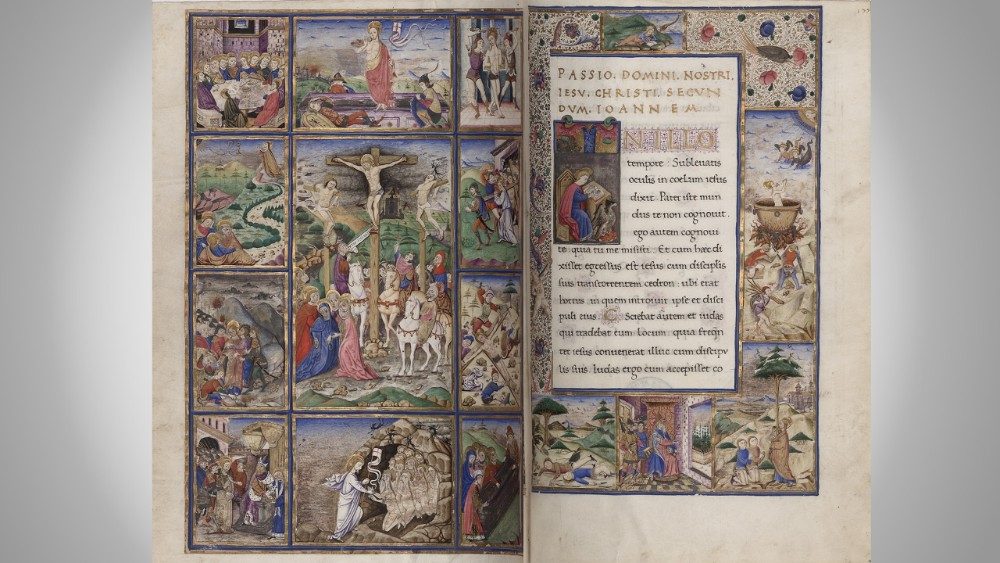 PASSIO. DOMINI. NOSTRI.
IESV. CHRISTI. SECVN
DVM. IOANNEM.
IN ILLO
tempore: Subleuatis
oculis in coelum iesus
dixit. Pater iste mun
dus te non cognouit.
ego autem cognoui
te. quia tu me misisti. Et cum haec di
xisset egressus est iesus cum discipulis
suis trans torrentem cedron: ubi erat
hortus. in quem introiuit ipse et disci
puli eius. Sciebat autem et iudas
qui tradebat eum Locum. quia
ter iesus conuenerat illuc cum discipu
lis suis. Iudas ergo cum accepisset co